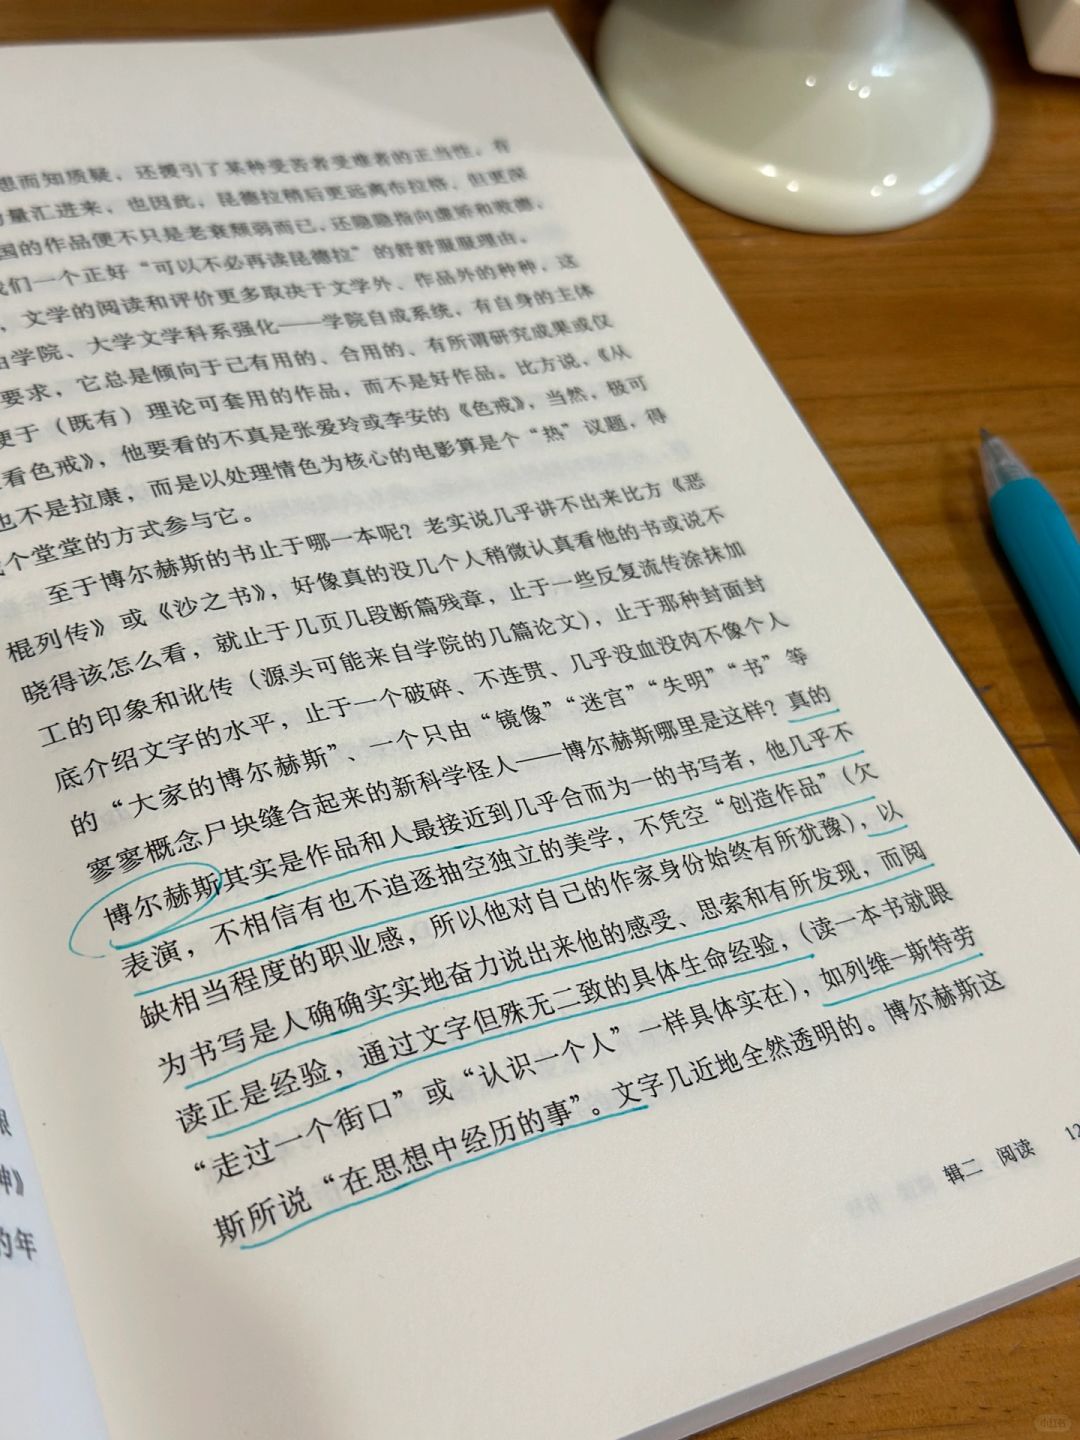 想而知质疑，还援引了某种受苦者受难者的正当性，有
力量汇进来，也因此，昆德拉稍后更远离布拉格、但更深
国的作品便不只是老衰颓弱而已，还隐隐指向虚矫和败德，
我们一个正好“可以不必再读昆德拉”的舒舒服服理由。
，文学的阅读和评价更多取决于文学外、作品外的种种，这
由学院、大学文学科系强化——学院自成系统，有自身的主体
要求，它总是倾向于已有用的、合用的、有所谓研究成果或仅
便于（既有）理论可套用的作品，而不是好作品。比方说，《从
看色戒》，他要看的不真是张爱玲或李安的《色戒》，当然，极可
也不是拉康，而是以处理情色为核心的电影算是个“热”议题，得
个堂堂的方式参与它。
至于博尔赫斯的书止于哪一本呢？老实说几乎讲不出来比方《恶
棍列传》或《沙之书》，好像真的没几个人稍微认真看他的书或说不
晓得该怎么看，就止于几页几段断篇残章，止于一些反复流传涂抹加
工的印象和讹传（源头可能来自学院的几篇论文），止于那种封面封
底介绍文字的水平，止于一个破碎、不连贯、几乎没血没肉不像个人
的“大家的博尔赫斯”、一个只由“镜像”“迷宫”“失明”“书”等
寥寥概念尸块缝合起来的新科学怪人——博尔赫斯哪里是这样？真的
博尔赫斯其实是作品和人最接近到几乎合而为一的书写者，他几乎不
表演，不相信有也不追逐抽空独立的美学，不凭空“创造作品”（欠
缺相当程度的职业感，所以他对自己的作家身份始终有所犹豫），以
为书写是人确确实实地奋力说出来他的感受、思索和有所发现，而阅
读正是经验，通过文字但殊无二致的具体生命经验，（读一本书就跟
“走过一个街口”或“认识一个人”一样具体实在），如列维-斯特劳
斯所说“在思想中经历的事”。文字几近地全然透明的。博尔赫斯这
辑二 阅读 12
神》
的年
小红书